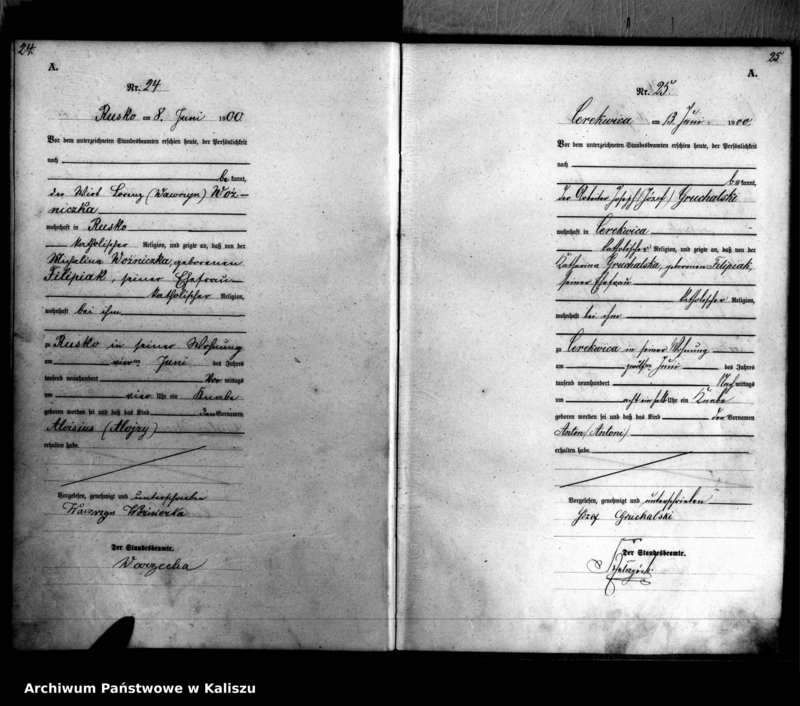 24.
A.
Nr. 24
Rusko am 8. Juni 1900
Vor dem unterzeichneten Standesbeamten erschien heute, der Persönlichkeit
nach
be kannt,
der Wirt Lorenz (Wawrzyn) Woź-
niczka
wohnhaft in Rusko
katholischer Religion, und zeigte an, daß von der
Michalina Woźniczka, geborenen
Filipiak, seiner Ehefrau
katholischer Religion,
wohnhaft bei ihm
zu Rusko in seiner Wohnung
am vierten Juni des Jahres
tausend neunhundert Vor mittags
um vier Uhr ein Knabe
geboren worden sei und daß das Kind den Vornamen
Aloisius (Alojzy)
erhalten habe.
Vorgelesen, genehmigt und unterschrieben
Wawrzyn Woźniczka
Der Standesbeamte.
Warzecha
25
A.
Nr. 25
Cerekwica am 13. Juni 1900.
Vor dem unterzeichneten Standesbeamten erschien heute, der Persönlichkeit
nach
be kannt,
der Arbeiter Joseph (Józef) Gruchalski
wohnhaft in Cerekwica
katholischer Religion, und zeigte an, daß von der
Katharina Gruchalska, geborenen Filipiak,
seiner Ehefrau
katholischer Religion,
wohnhaft bei ihm
zu Cerekwica in seiner Wohnung
am zwölften Juni des Jahres
tausend neunhundert Nach mittags
um acht ein halb Uhr ein Knabe
geboren worden sei und daß das Kind den Vornamen
Anton (Antoni)
erhalten habe.
Vorgelesen, genehmigt und unterschrieben
Józef Gruchalski
Der Standesbeamte.
Archiwum Państwowe w Kaliszu